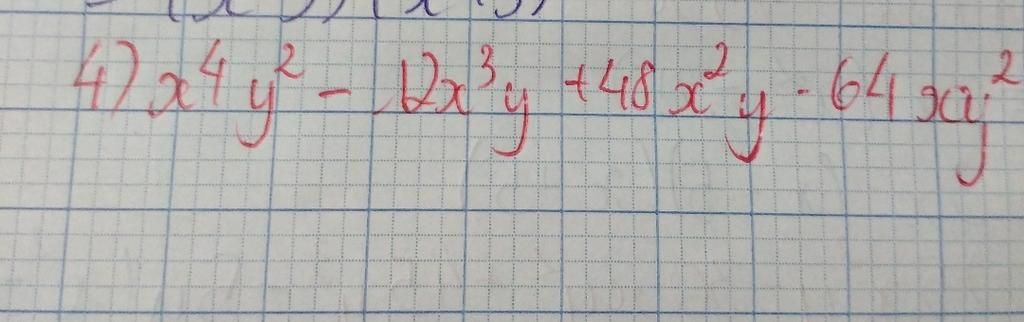 4) x⁴y² - 12x³y + 48x²y - 64xy²